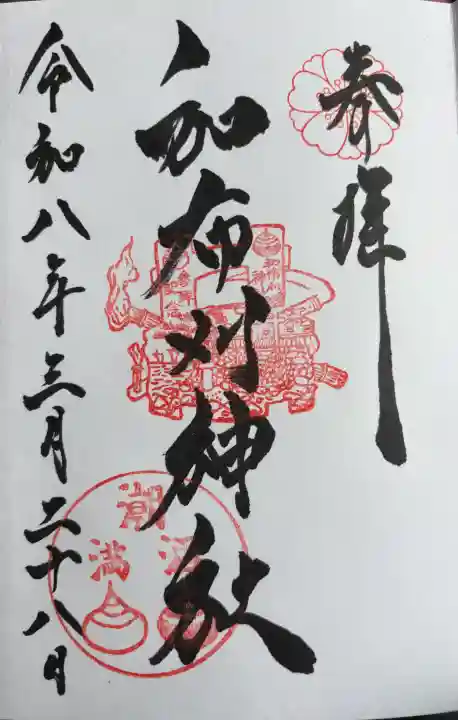 奉拝
和布刈神社
令和八年三月二十八日
潮
満